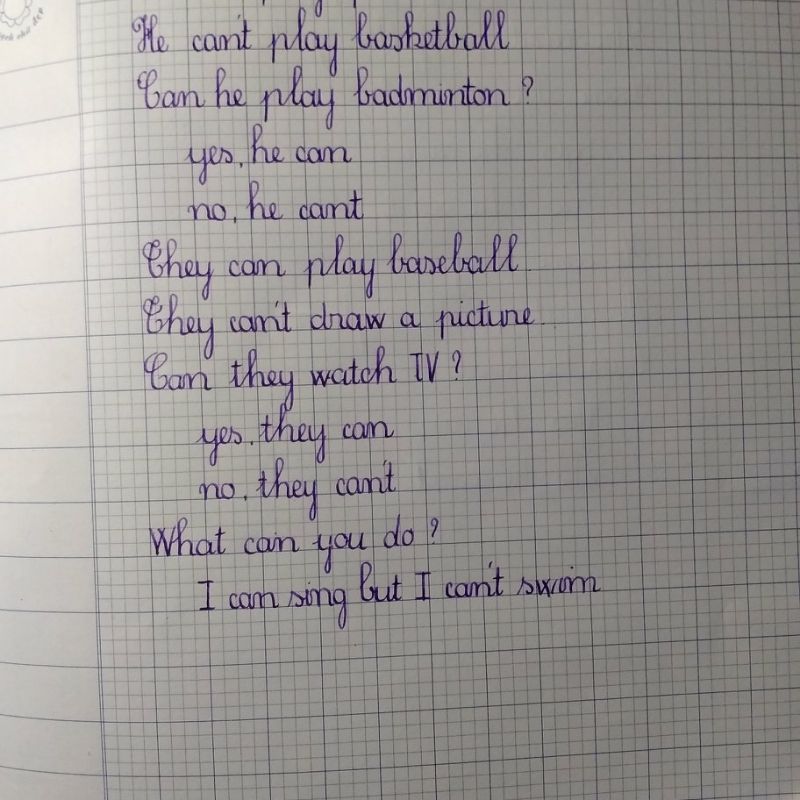 He can't play basketball
Can he play badminton?
yes, he can
no, he cant
They can play baseball
They can't draw a picture
Can they watch TV?
yes, they can
no, they can't
What can you do?
I can sing but I can't swim